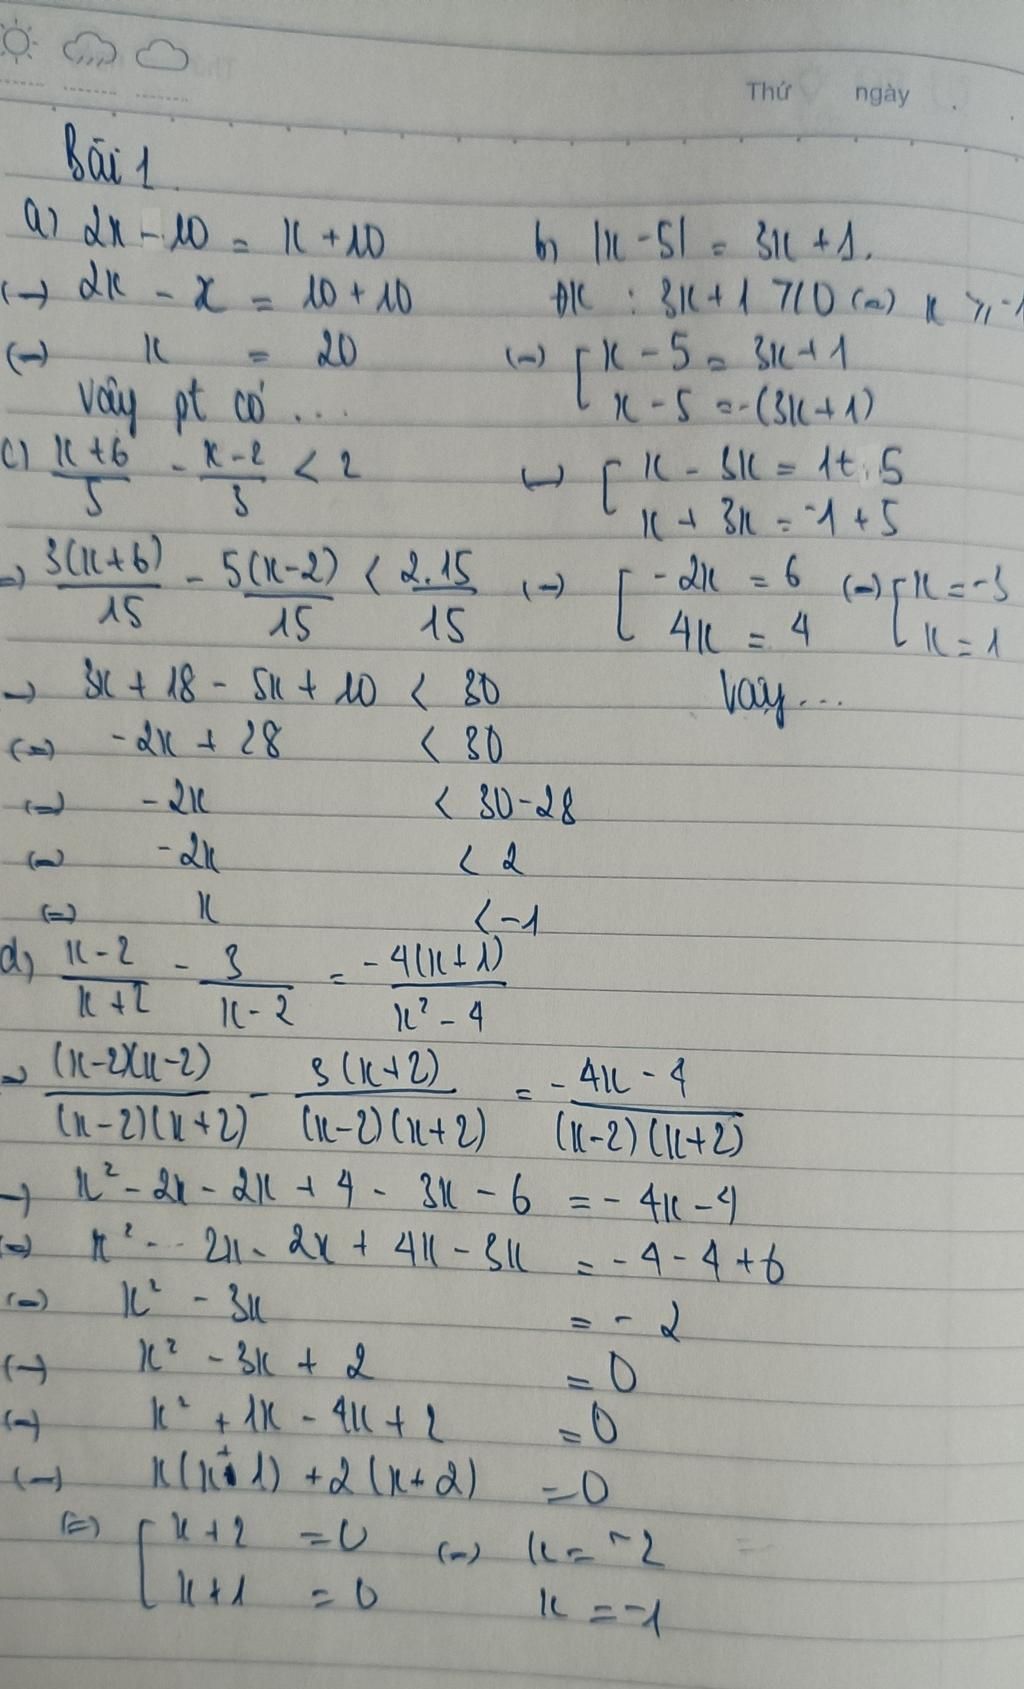 Thứ ngày
Bài 1
a) 2x - 10 = x + 10
(=) 2x - x = 10 + 10
(=) x = 20
Vậy pt có ...
b) |x - 5| = 3x + 1.
ĐK : 3x + 1 ≥ 0 (=) x ≥ -1
(=) [ x - 5 = 3x + 1
x - 5 = -(3x + 1)
(=) [ x - 3x = 1 + 5
x + 3x = -1 + 5
(=) [ -2x = 6 (=) [ x = -3
4x = 4 x = 1
Vậy ...
c) x + 6 / 5 - x - 2 / 3 < 2
=) 3(x + 6) / 15 - 5(x - 2) / 15 < 2.15 / 15
=) 3x + 18 - 5x + 10 < 30
(=) -2x + 28 < 30
(=) -2x < 30 - 28
(=) -2x < 2
(=) x < -1
d) x - 2 / x + 2 - 3 / x - 2 = -4(x + 1) / x² - 4
=) (x - 2)(x - 2) / (x - 2)(x + 2) - 3(x + 2) / (x - 2)(x + 2) = -4x - 4 / (x - 2)(x + 2)
=) x² - 2x - 2x + 4 - 3x - 6 = -4x - 4
(=) x² - 2x - 2x + 4x - 3x = -4 - 4 + 6
(=) x² - 3x = -2
(=) x² - 3x + 2 = 0
(=) x² + 1x - 4x + 2 = 0
(=) x(x + 1) + 2(x + 2) = 0
(=) [ x + 2 = 0 (=) x = -2
x + 1 = 0 x = -1